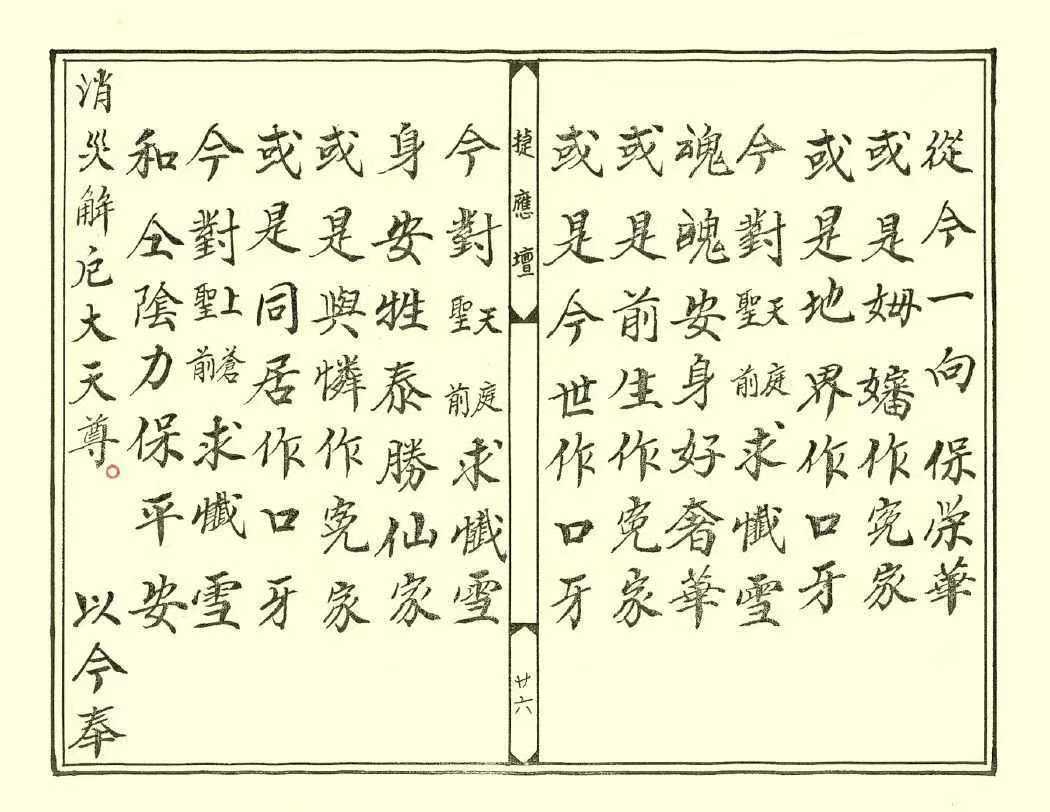 從今一向保栄華
或是姆嬸作寃家
或是地界作口牙
今對天庭聖前求懺雪
魂魄安身好奢華
或是前生作寃家
或是今世作口牙
捷應壇
廿六
今對天庭聖前求懺雪
身安牲泰勝仙家
或是與憐作寃家
或是同居作口牙
今對上蒼聖前求懺雪
和仝隂力保平安
消災解厄大天尊。以今奉